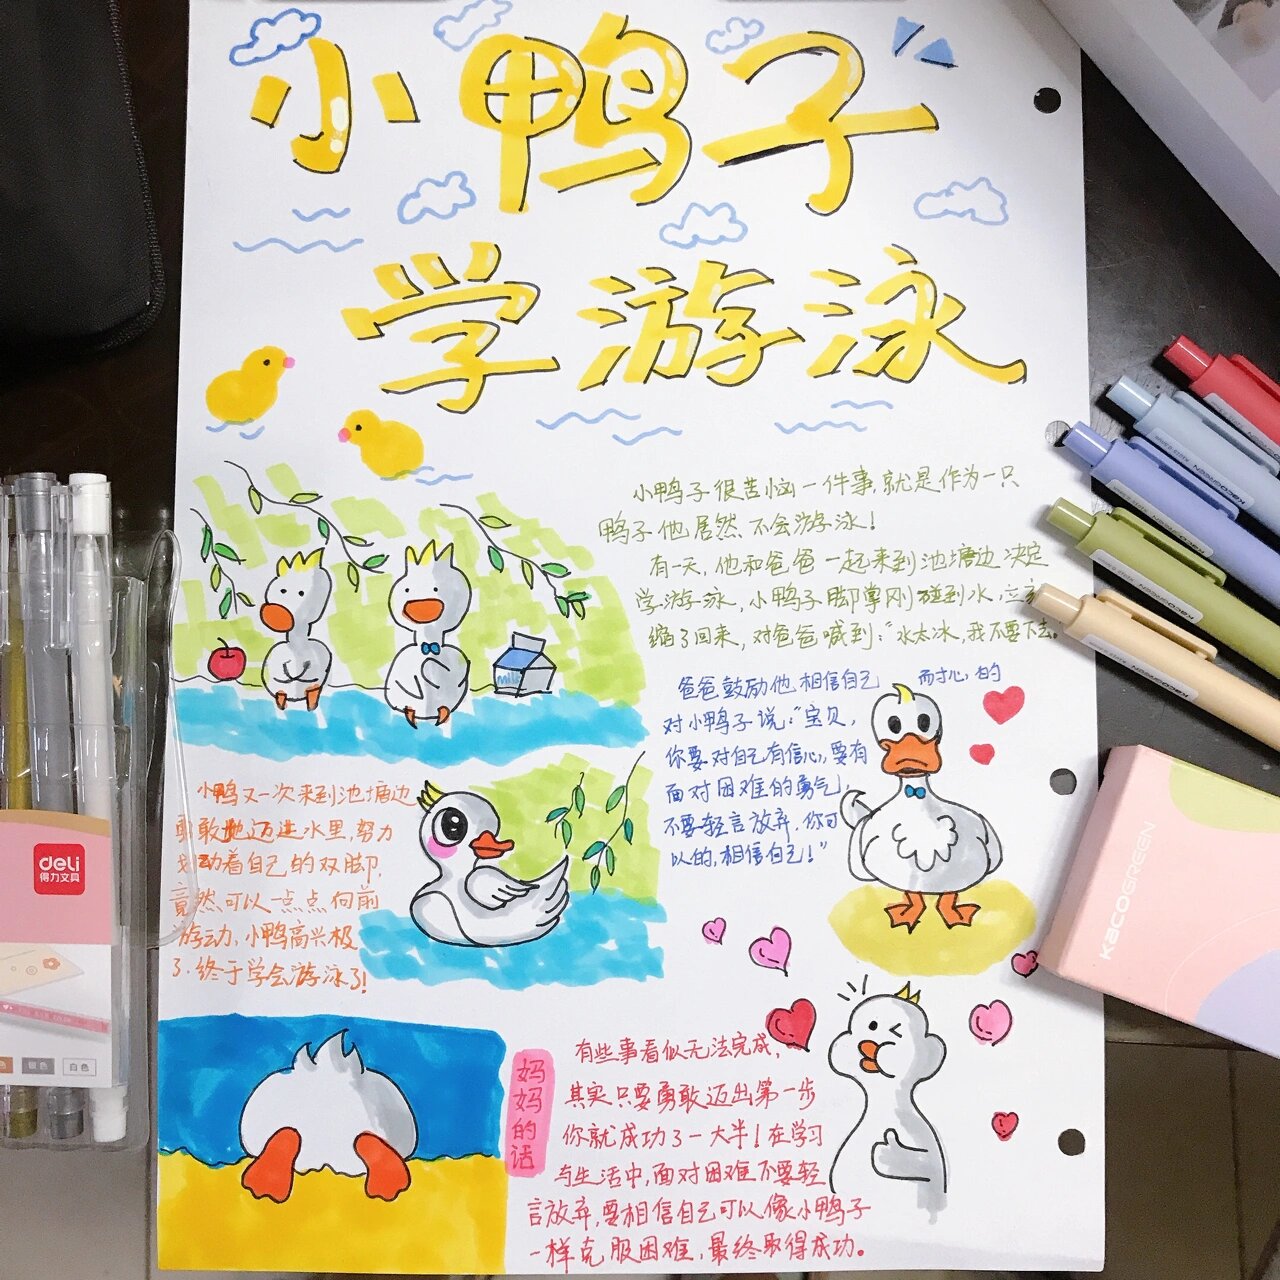 小鸭子
学游泳
小鸭子很苦恼一件事,就是作为一只
鸭子他居然不会游泳!
有一天,他和爸爸一起来到池塘边决定
学游泳,小鸭子脚掌刚碰到水,立
缩了回来,对爸爸喊到:"水太冰,我不要下去。
爸爸鼓励他相信自己 而耐心的
对小鸭子说:"宝贝,
你要对自己有信心,要有
面对困难的勇气,
不要轻言放弃,你可
以的,相信自己!"
小鸭又一次来到池塘边
勇敢地迈进水里,努力
划动着自己的双脚,
竟然可以一点点向前
游动,小鸭高兴极
了,终于学会游泳了!
妈妈的话
有些事看似无法完成,
其实只要勇敢迈出第一步
你就成功了一大半!在学习
与生活中,面对困难不要轻
言放弃,要相信自己可以像小鸭子
一样克服困难,最终取得成功。
milk
deli
得力文具
银色
白色
KACOGREEN
KACOGREEN
KACOGREEN
KACOGREEN
KACOGREEN